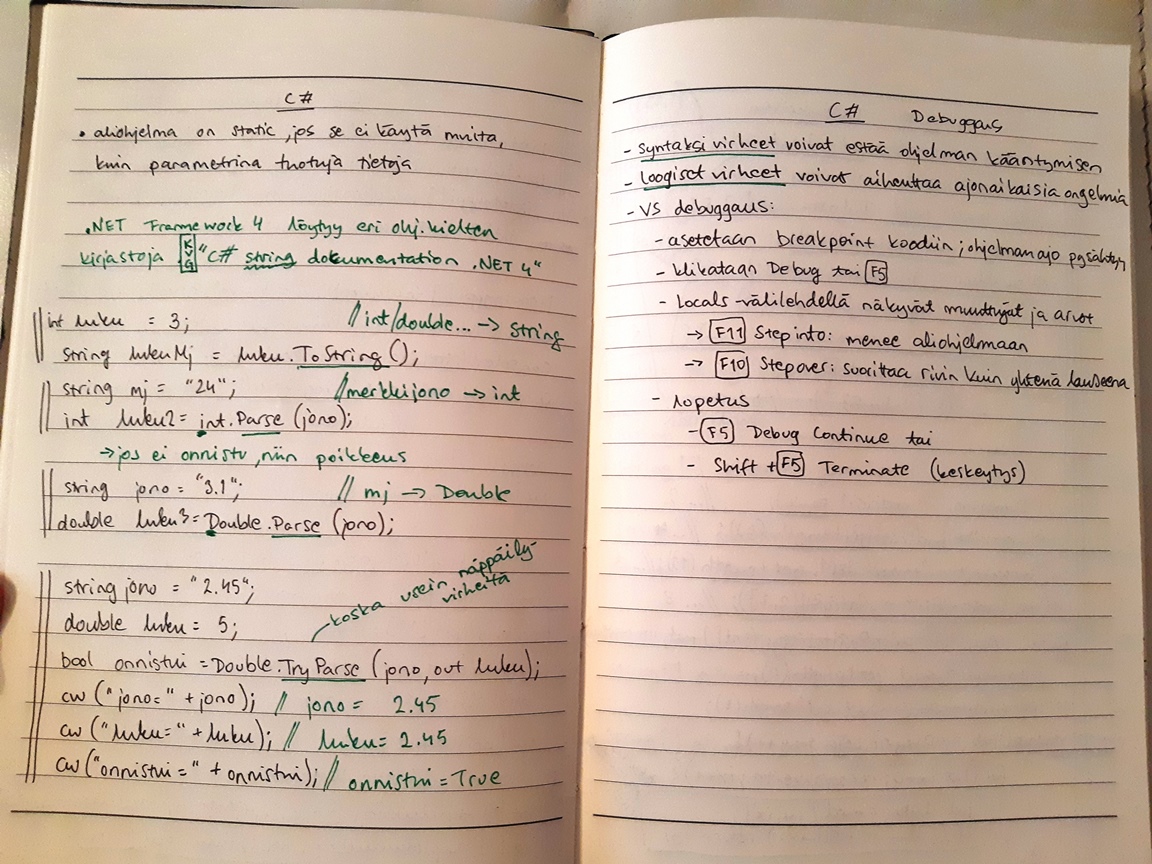 C#
• aliohjelma on static, jos se ei käytä muita,
kuin parametrina tuotuja tietoja
.NET Framework 4 löytyy eri ohj. kielten
kirjastoja KVG "C# string dokumentation .NET 4"
int luku = 3; // int/double... -> string
string lukuMj = luku.ToString();
string mj = "24"; // merkkijono -> int
int luku2 = int.Parse (jono);
-> jos ei onnistu, niin poikkeus
string jono = "3.1"; // mj -> Double
double luku3 = Double.Parse (jono);
string jono = "2.45";
double luku = 5;
koska usein näppäily-
virheitä
bool onnistui = Double.TryParse (jono, out luku);
cw ("jono=" + jono); // jono = 2.45
cw ("luku=" + luku); // luku = 2.45
cw ("onnistui=" + onnistui); // onnistui = True
C# Debuggaus
- syntaksi virheet voivat estää ohjelman kääntymisen
- loogiset virheet voivat aiheuttaa ajonaikaisia ongelmia
- VS debuggaus:
- asetetaan breakpoint koodiin; ohjelman ajo pysähtyy
- klikataan Debug tai F5
- Locals -välilehdellä näkyvät muuttujat ja arvot
-> F11 Step into: menee aliohjelmaan
-> F10 Step over: suorittaa rivin kuin yhtenä lauseena
- Lopetus
- F5 Debug Continue tai
- Shift + F5 Terminate (keskeytys)